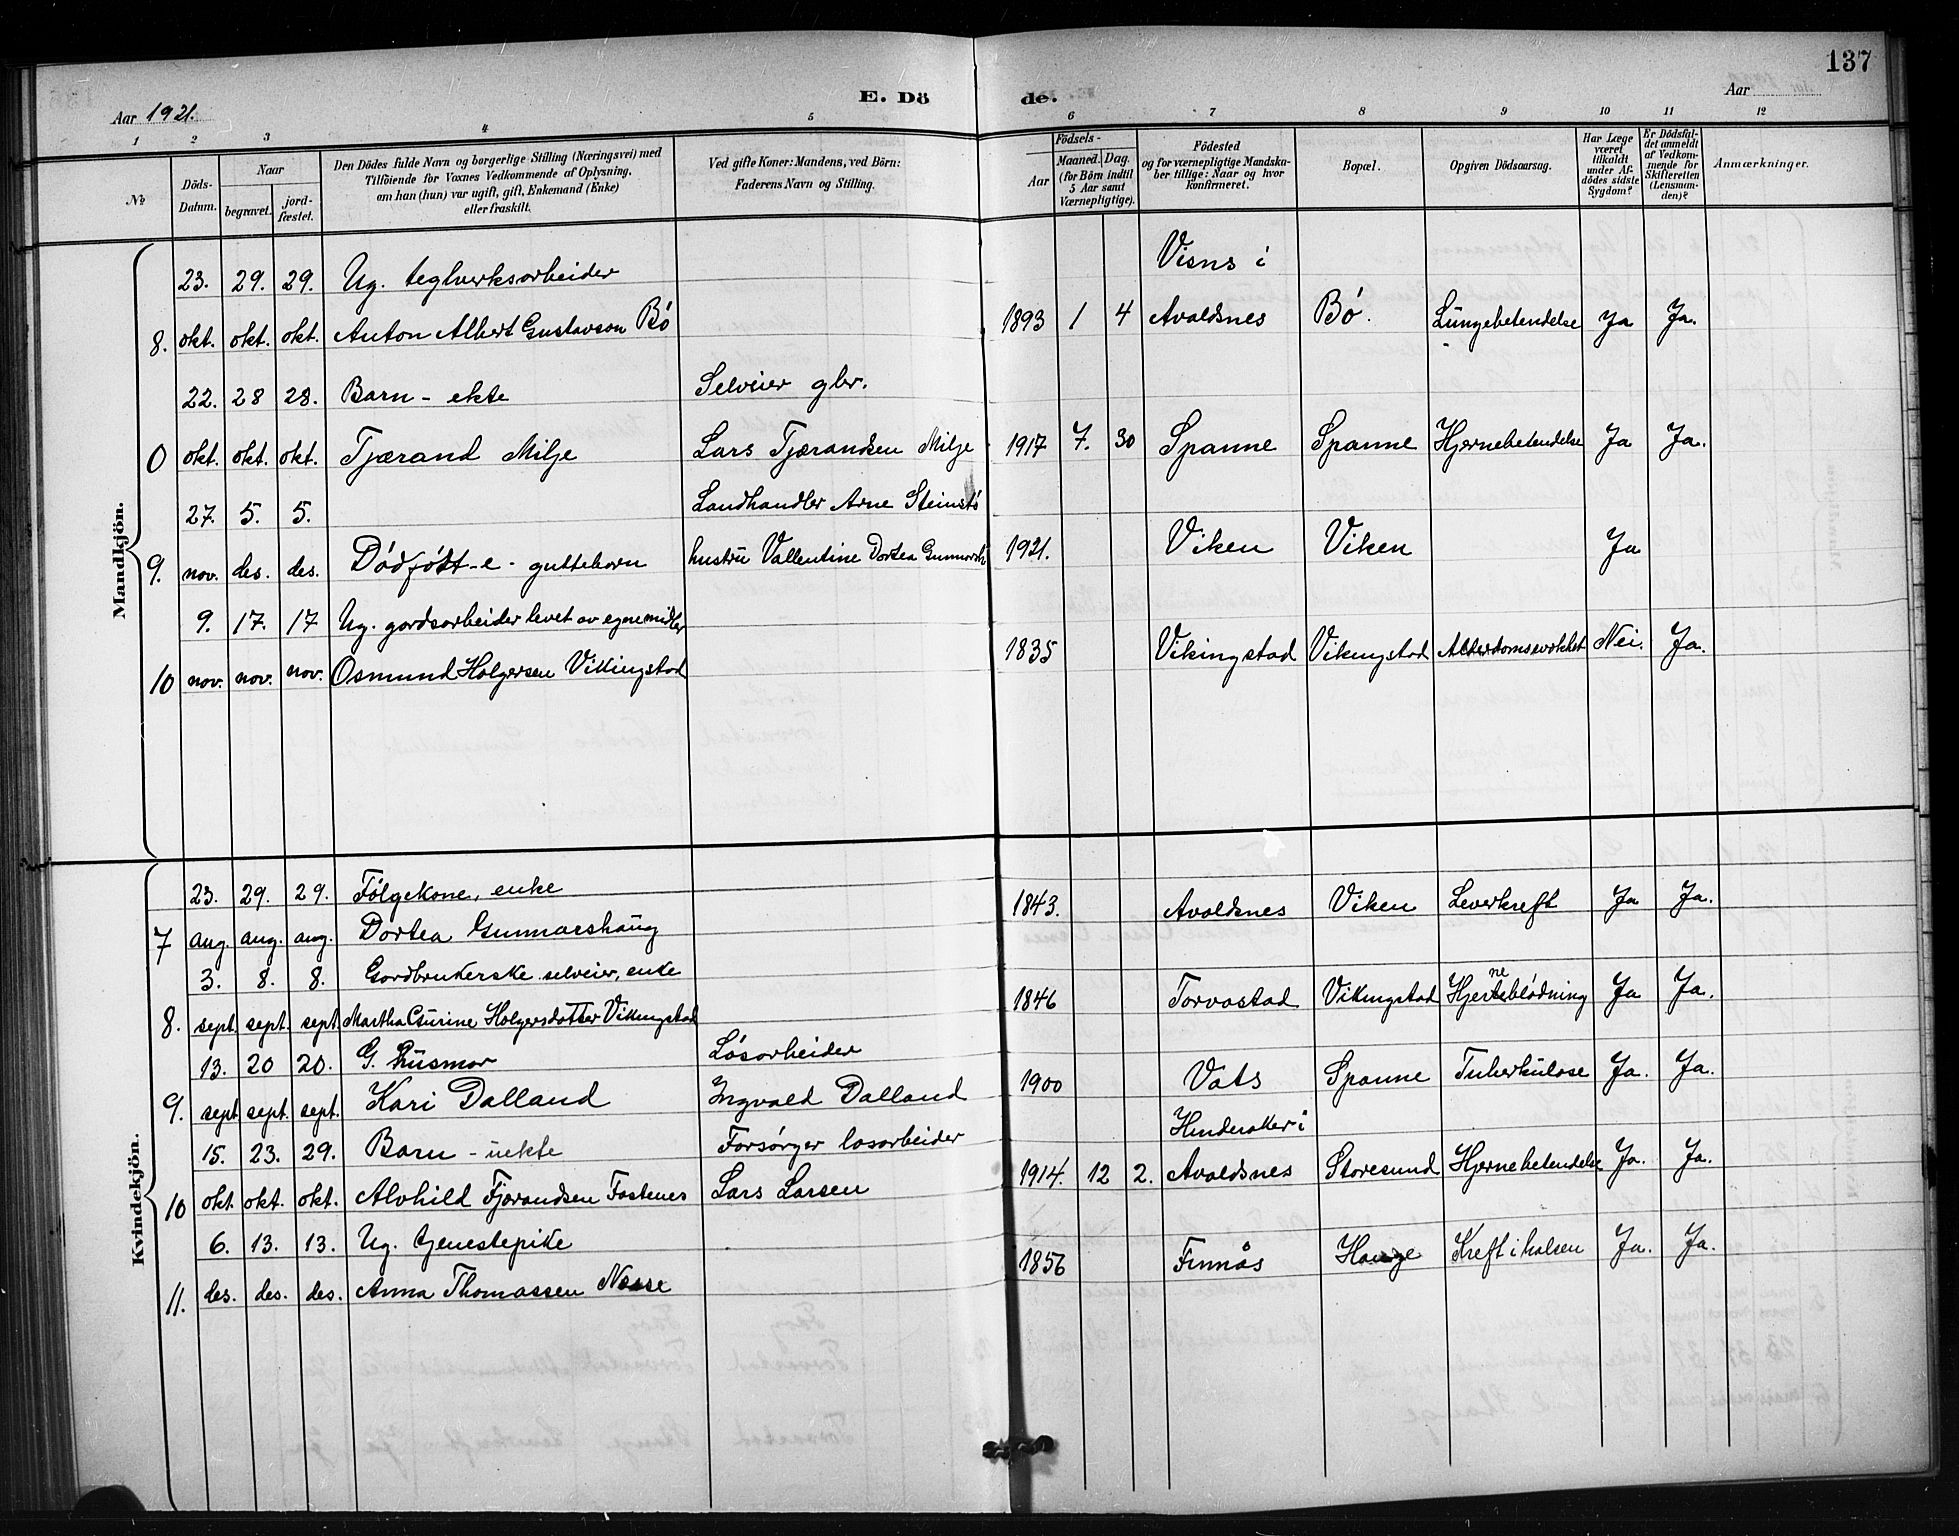 137
Aar 1921.
E. Dö de.
Aar
1 2 3 4 5 6 7 8 9 10 11 12
№
Döds-Datum.
Naar
begravet.
jord-fæstet.
Den Dödes fulde Navn og borgerlige Stilling (Næringsvei) med
Tilföiende for Voxnes Vedkommende af Oplysning,
om han (hun) var ugift, gift, Enkemand (Enke)
eller fraskilt.
Ved gifte Koner: Mandens, ved Börn:
Faderens Navn og Stilling.
Födsels-
Aar
Maaned. Dag.
(for Börn indtil
5 Aar samt
Værnepligtige).
Födested
og for værnepligtige Mandska-
ber tillige: Naar og hvor
konfirmeret.
Bopæl.
Opgiven Dödsaarsag.
Har Læge
været
tilkaldt
under Af-
dödes sidste
Sygdom?
Er Dödsfal-
det anmeldt
af Vedkom-
mende for
Skifteretten
(Lensman-
den)?
Anmærkninger.
Mandkjön.
23. 29. 29. Ug. teglverksarbeider Visns i
8. okt. okt. okt. Anton Albert Gustavson Bö 1893 1 4 Avaldsnes Bö. Lungebetendelse Ja Ja.
22. 28 28. Barn - ekte Selveier gbr.
0 okt. okt. okt. Tjærand Milje Lars Tjærandsen Milje 1917 7. 30 Spanne Spanne Hjernebetendelse Ja Ja.
27. 5. 5. Landhandler Arne Steinstö
9. nov. des. des. Dödfött - e - guttebarn hustru Vallentine Dortea 1921. Viken Viken Ja
9. 17. 17 Ug. gardsarbeider levet av egne midler
10 nov. nov. nov. Osmund Holgersen Vikingstad 1835 Vikingstad Vikingstad Alderdomsvakhet Nei. Ja.
Kvindekjön.
23. 29. 29. Fölgekone, enke
7 aug. aug. aug. Dortea Gunnarshaug 1843. Avaldsnes Viken Leverkreft Ja Ja.
3. 8. 8. Gardbrukerske selveier, enke
8. sept. sept. sept. Martha Gurine Holgersdatter Vikingstad 1846 Torvastad Vikingstad Hjerneblödning Ja Ja.
13. 20 20. G. husmor Lösarbeider
9. sept sept. sept. Kari Dalland Ingvald Dalland 1900 Vats Spanne Tuberkulose Ja. Ja.
15. 23. 29. Barn - uekte Forsörger losarbeider Hinderaker i
10 okt. okt. okt. Alvhild Fjærandsen Fostenes Lars Larsen 1914. 12 2. Avaldsnes Storesund Hjernebetendelse Ja. Ja.
6. 13. 13. Ug. tjenestepike
11. des. des. des. Anna Thomassen Nesse 1856 Finnås Hauge Kreft i halsen Ja. Ja.